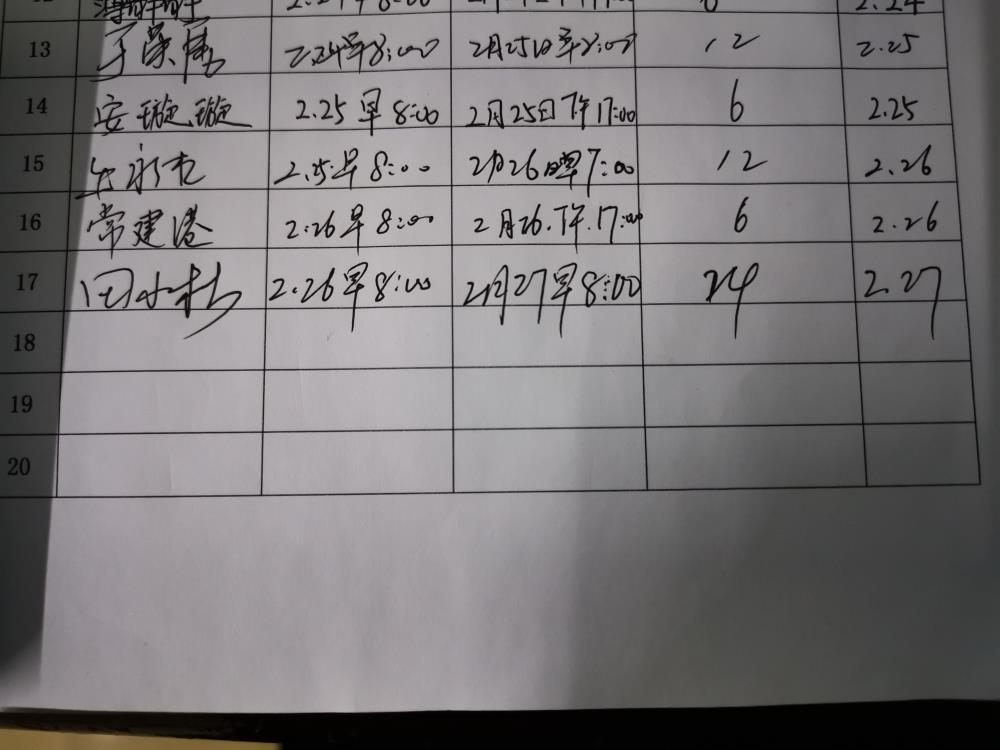 2.24
13 2.24早8:00 2月25日早8:00 12 2.25
14 安璇璇 2.25早8:00 2月25日下午17:00 6 2.25
15 2.25.早8:00 2月26日早7:00 12 2.26
16 常建港 2.26早8:00 2月26.下午.17:00 6 2.26
17 田小彬 2.26早8:00 2月27早8:00 24 2.27
18
19
20